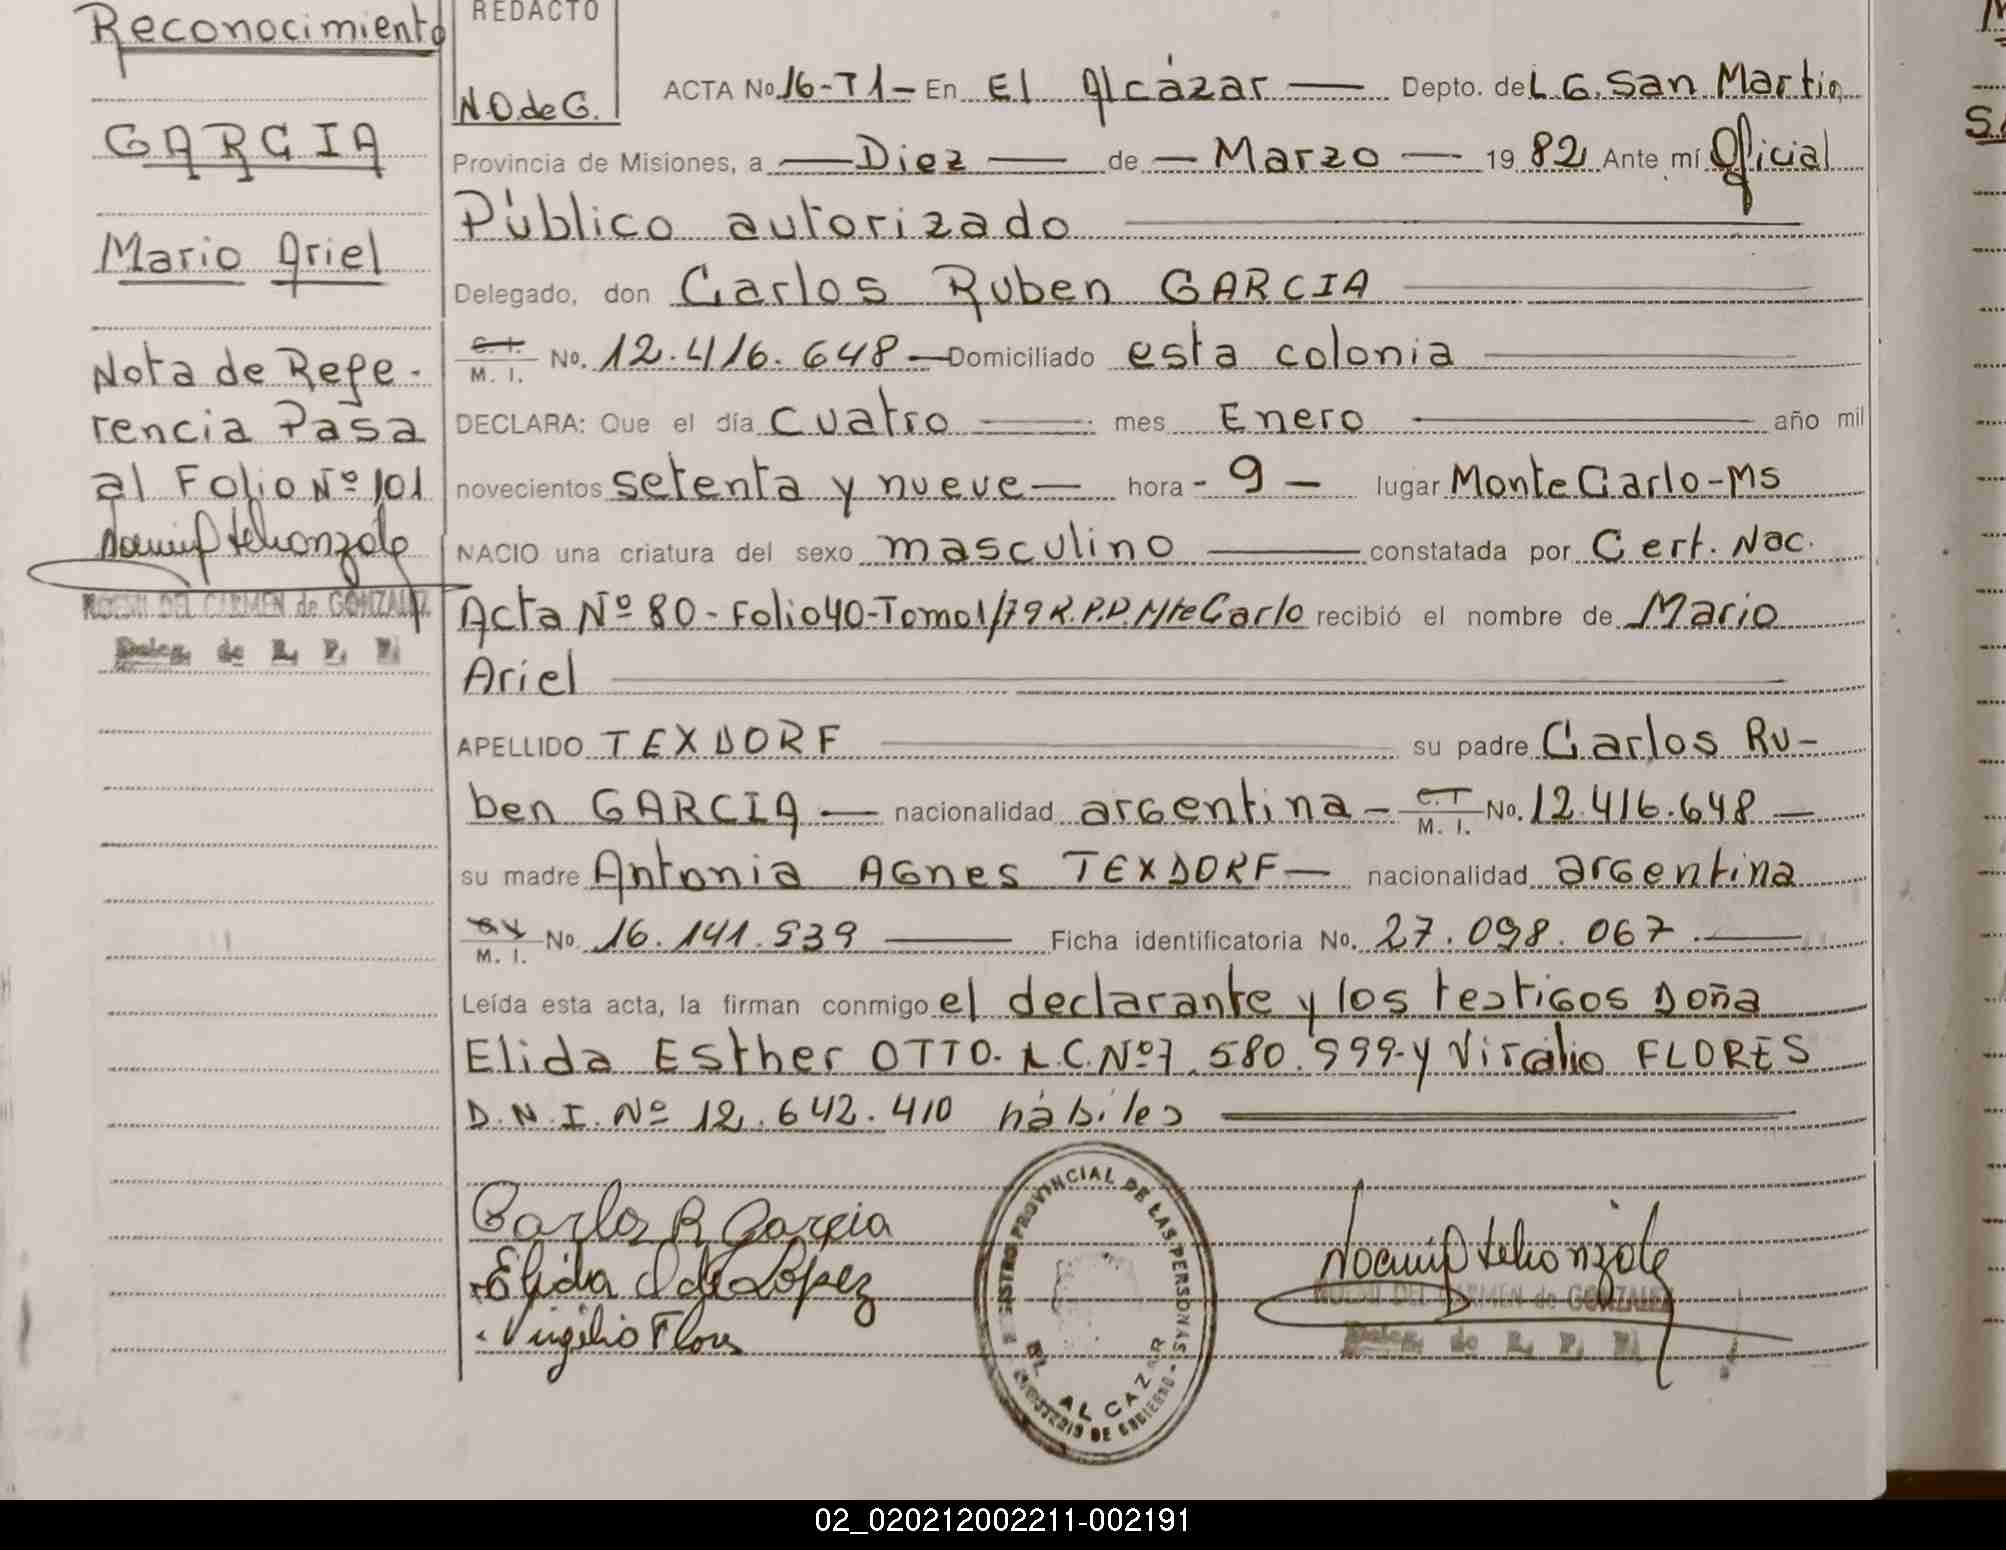 Reconocimiento
GARCIA
Mario Ariel
Nota de Refe-
rencia Pasa
al Folio Nº 101
NOEMI DEL CARMEN de GONZALEZ
Deleg. de R. P. P.
REDACTO
N.D. de G.
ACTA No 16-T1- En El Alcázar — Depto. de L G. San Martin
Provincia de Misiones, a — Diez — de — Marzo — 19 82 Ante mí Oficial
Público autorizado
Delegado, don Carlos Ruben GARCIA
C. I. M. I. No. 12.416.648 — Domiciliado esta colonia
DECLARA: Que el día Cuatro — mes Enero — año mil
novecientos setenta y nueve — hora - 9 — lugar Monte Carlo-Ms
NACIO una criatura del sexo masculino — constatada por Cert. Nac.
Acta Nº 80 - Folio 40 - Tomo 1/79 R.P.P. Mte Carlo recibió el nombre de Mario
Ariel
APELLIDO TEXDORF — su padre Carlos Ru-
ben GARCIA — nacionalidad argentina - C.I M. I. No. 12.416.648 —
su madre Antonia Agnes TEXDORF — nacionalidad argentina
M. I. No. 16.141.539 — Ficha identificatoria No. 27.098.067. —
Leída esta acta, la firman conmigo el declarante y los testigos Doña
Elida Esther OTTO. L.C. Nº 7.580.999- y Virgilio FLORES
D.N.I. Nº 12.642.410 hábiles
Carlos R Garcia
Elida O de Lopez
Virgilio Flores
REGISTRO PROVINCIAL DE LAS PERSONAS
EL ALCAZAR
MINISTERIO DE GOBIERNO
NOEMI DEL CARMEN de GONZALEZ
Deleg. de R. P. P.
02_020212002211-002191